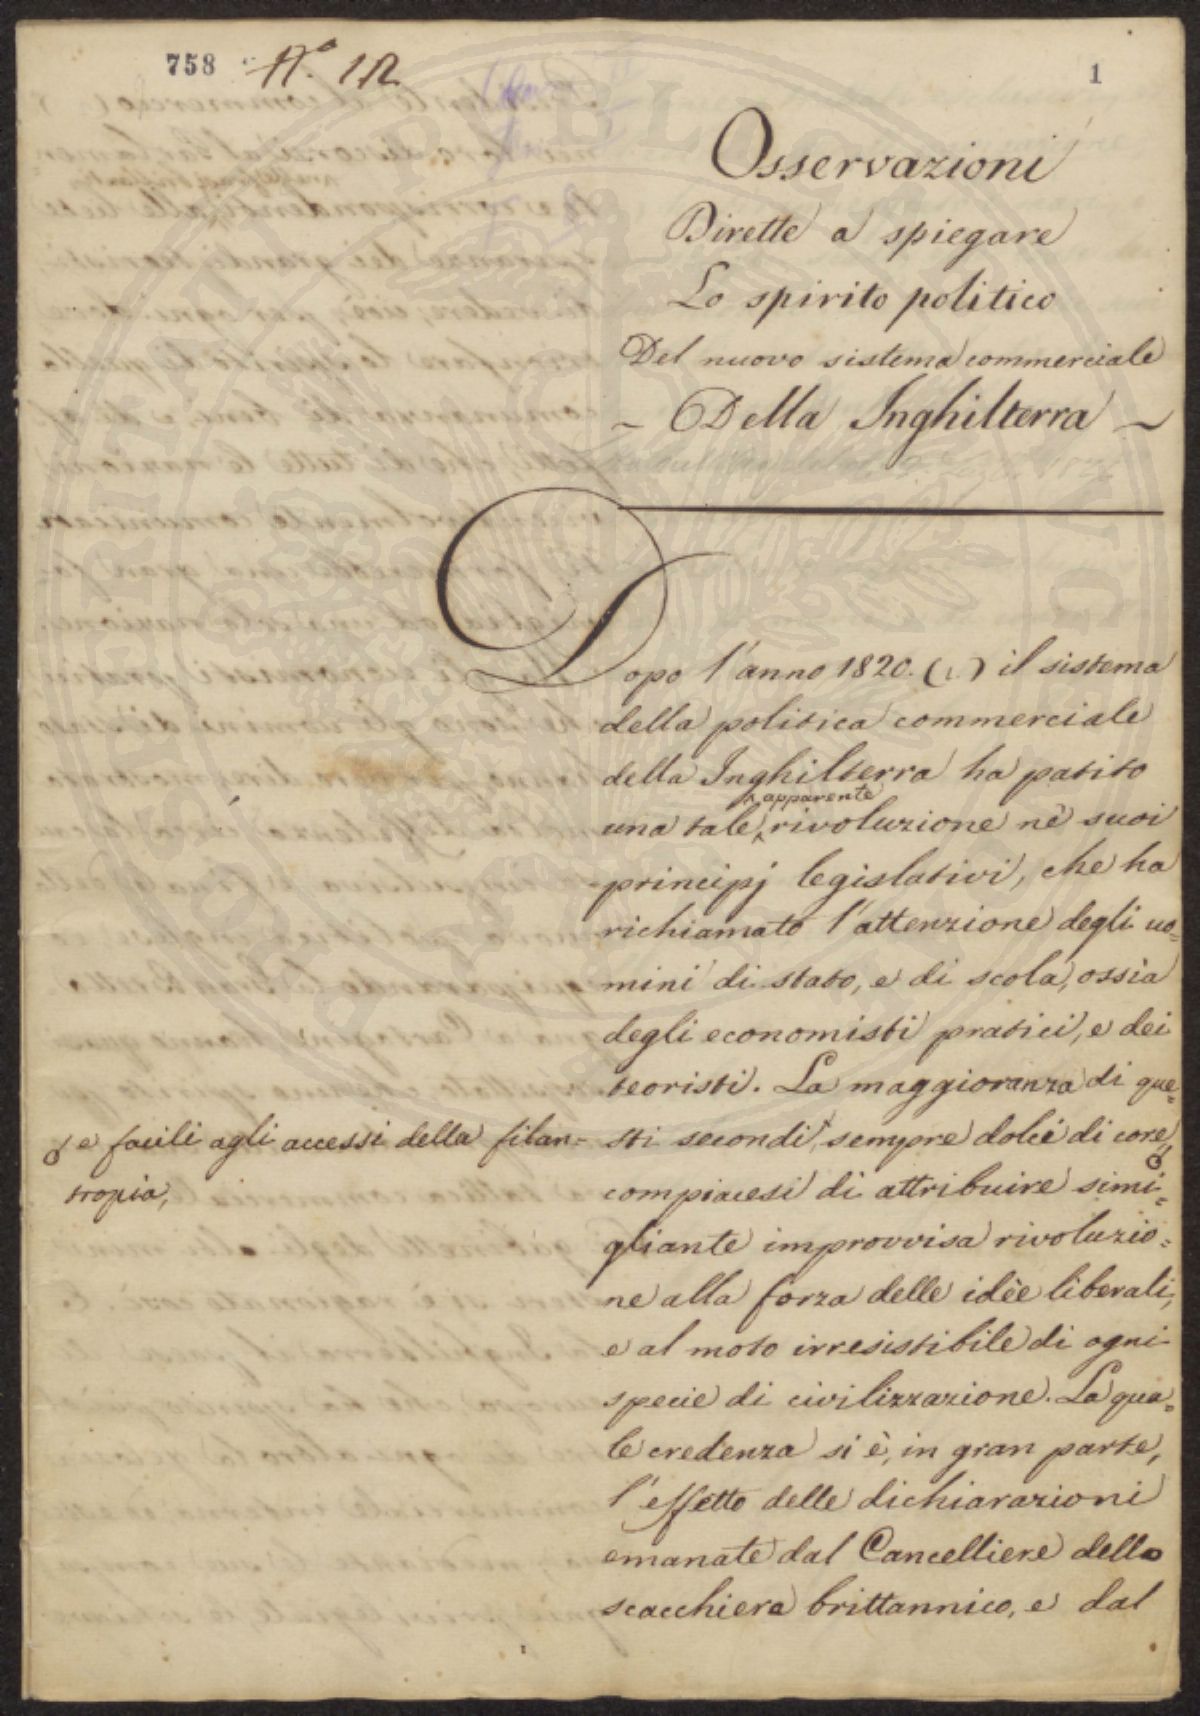 758 N.º 12
1
Osservazioni
Dirette a spiegare
Lo spirito politico
Del nuovo sistema commerciale
~ Della Inghilterra ~
Dopo l'anno 1820. (1) il sistema
della politica commerciale
della Inghilterra ha patito
apparente
una tale rivoluzione nè suoi
principj legislativi, che ha
richiamato l'attenzione degli uo=
mini di stato, e di scola, ossia
degli economisti pratici, e dei
teoristi. La maggioranza di que=
sti secondi, sempre dolci di core
e facili agli accessi della filan=
tropia,
compiacesi di attribuire simi=
gliante improvvisa rivoluzio=
ne alla forza delle idèe liberali,
e al moto irresistibile di ogni
specie di civilizzazione. La qua=
le credenza si è, in gran parte,
l'effetto delle dichiarazioni
emanate dal Cancelliere dello
scacchiere brittannico, e dal